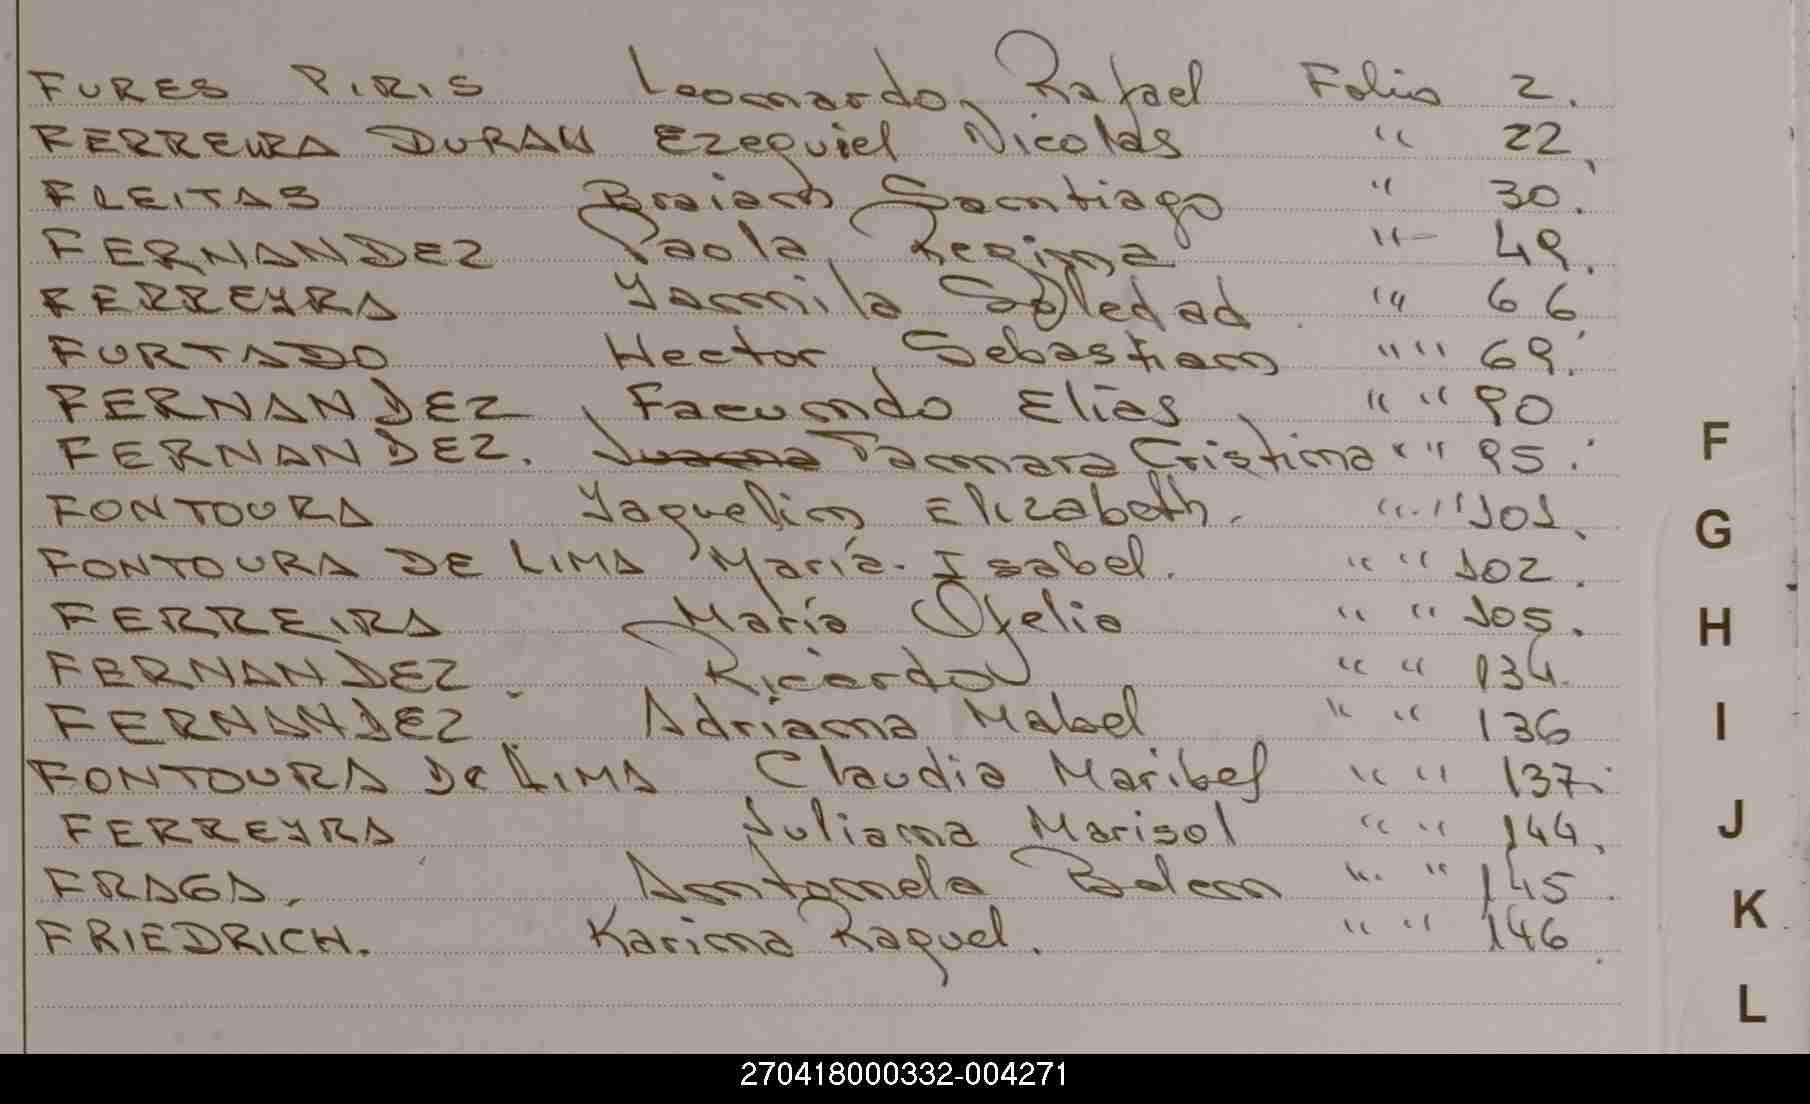 FURES PIRIS Leonardo, Rafael Folio 2.
FERREIRA DURAN Ezequiel Nicolas " 22.
FLEITAS Braian Santiago " 30.
FERNANDEZ Paola Regina " 49.
FERREYRA Yamila Soledad " 66
FURTADO Hector Sebastian " " 69.
FERNANDEZ Facundo Elias " " 90
FERNANDEZ. Juana Tamara Cristina " " 95.
FONTOURA Yaquelin Elizabeth. " " 101.
FONTOURA DE LIMA María Isabel. " " 102.
FERREIRA María Ofelia " " 105.
FERNANDEZ Ricardo " " 134.
FERNANDEZ Adriana Mabel " " 136
FONTOURA De LIMA Claudia Maribel " " 137.
FERREYRA Juliana Marisol " " 144.
FRAGA. Antonela Belen " " 145
FRIEDRICH. Karina Raquel. " " 146.
F
G
H
I
J
K
L
270418000332-004271